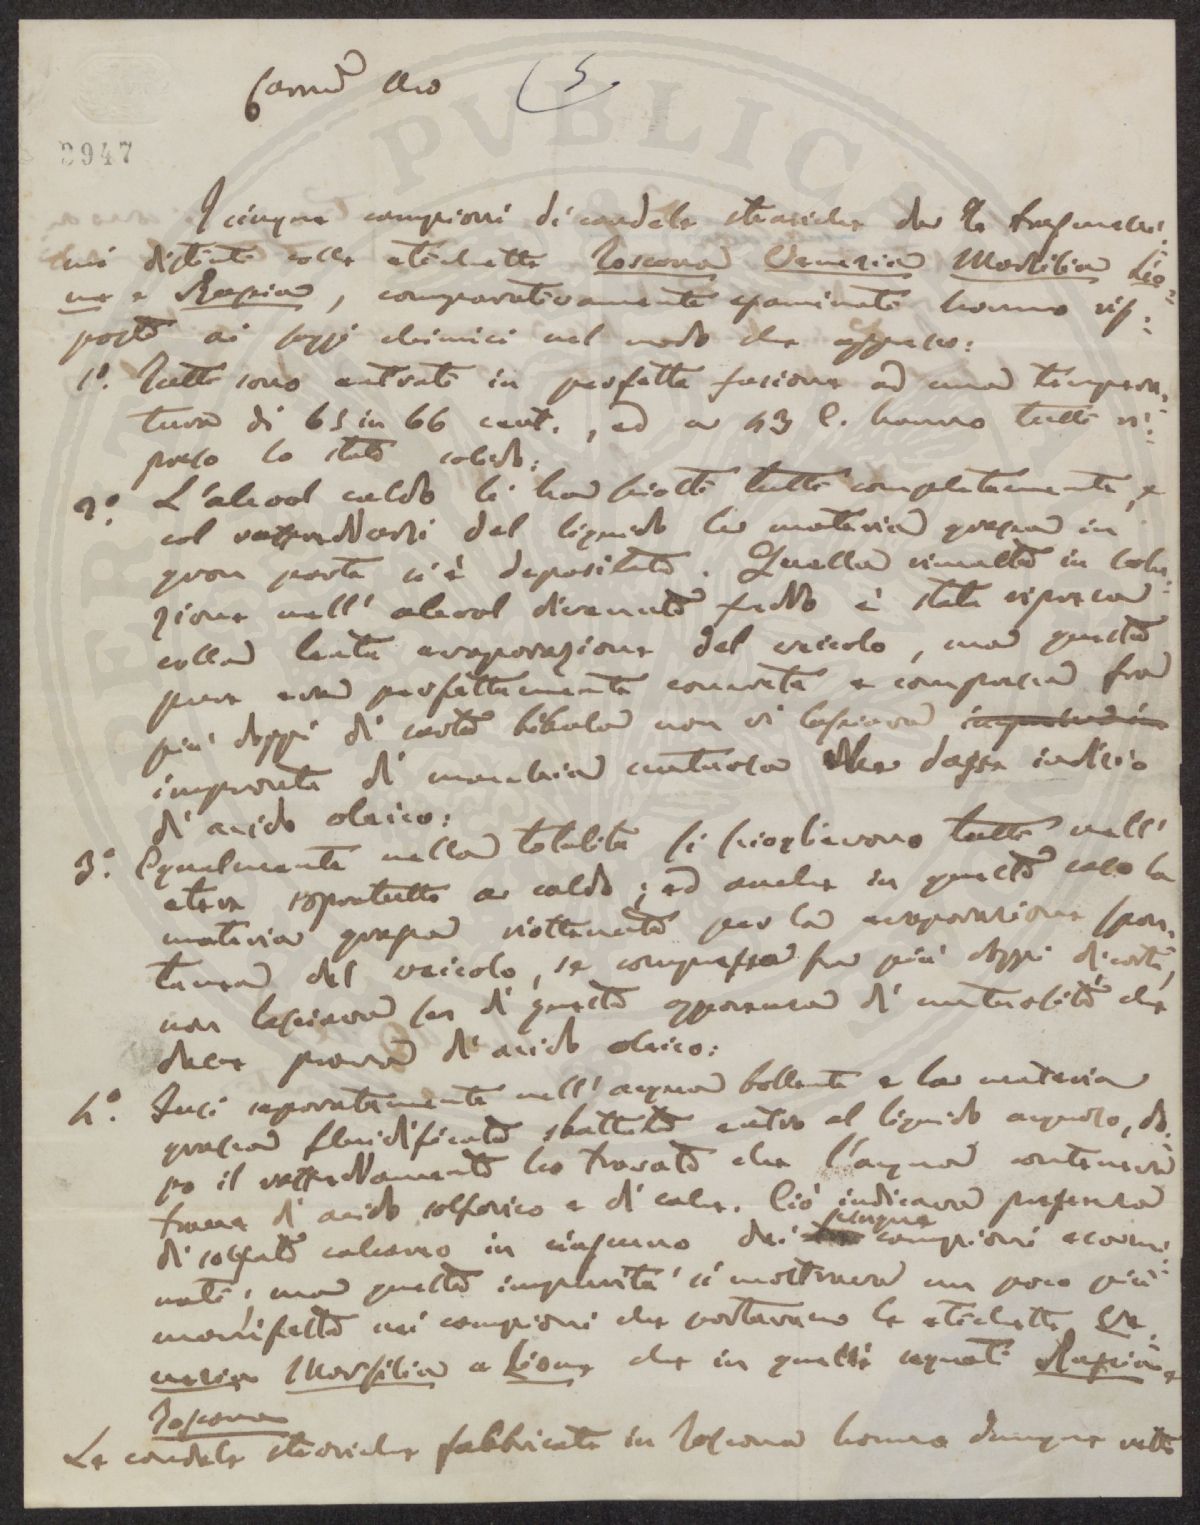 5
3947
I cinque campioni di candele steariche da Te trasmessi=
mi distinti colle etichette Toscana Venezia Marsilia Lio=
ne e Russia, comparativamente esaminate hanno ris=
posto ai saggi chimici nel modo che appresso:
1º. Tutte sono entrate in perfetta fusione ad una tempera=
tura di 65 in 66 cent., ed a 43 C. hanno tutte ri=
preso lo stato solido:
2º. L'alcool caldo le ha sciolte tutte completamente, e
col raffreddarsi del liquido la materia grassa in
gran parte si è depositata. Quella rimasta in solu=
zione nell'alcool divenuto freddo è stata ripresa
colla lenta evaporazione del veicolo, ma questa
pure era perfettamente concreta e compressa fra
più doppi di carta bibula non vi lasciava
impronta di macchia untuosa che dasse indizio
di acido oleico:
3º. Egualmente nella totalità si scioglievano tutte nell'
etere soprattutto a caldo; ed anche in questo caso la
materia grassa riottenuta per la evaporazione spon=
tanea del veicolo, se compressa fra più doppi di carta,
non lasciava su di questa apparenza di untuosità che
desse prova di acido oleico:
4º. Fusi separatamente nell'acqua bollente e la materia
grassa fluidificata sbattuta entro al liquido acquoso, do=
po il raffreddamento ho trovato che l'acqua conteneva
tracce di acido solforico e di calce. Ciò indicava presenza
di solfato calcareo in ciascuno dei cinque campioni econo=
nati; ma questa impurità si mostrava un poco più
manifesta nei campioni che portavano le etichette Ve=
nezia Marsilia e Lione che in quelli segnati Russia e
Toscana
Le candele steariche fabbricate in Toscana hanno dunque